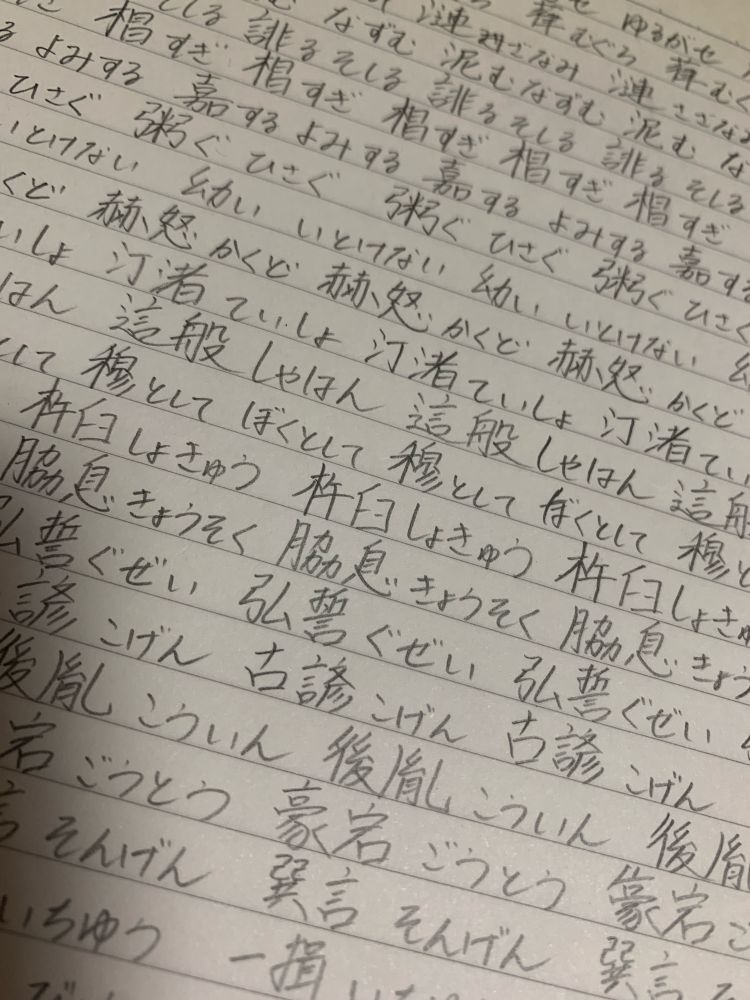 ゆるがせ
葎 むぐら 葎 むぐ
漣 さざなみ 漣 さざなみ
なずむ 泥む なずむ 泥む な
そしる 誹る そしる 誹る そしる 誹る そしる
椙 すぎ 椙 すぎ 椙 すぎ 椙 すぎ 椙 すぎ
る よみする 嘉する よみする 嘉する よみする 嘉する
ひさぐ 粥ぐ ひさぐ 粥ぐ ひさぐ 粥ぐ ひさぐ
いとけない 幼い いとけない 幼い いとけない 幼
くど 赫怒 かくど 赫怒 かくど 赫怒 かくど
いしょ 汀渚 ていしょ 汀渚 ていしょ 汀渚 てい
はん 這般 しゃはん 這般 しゃはん 這般
として 穆として ぼくとして 穆として ぼくとして 穆と
杵臼 しょきゅう 杵臼 しょきゅう 杵臼 しょきゅ
脇息 きょうそく 脇息 きょうそく 脇息 きょう
弘誓 ぐぜい 弘誓 ぐぜい 弘誓 ぐぜい
諺 こげん 古諺 こげん 古諺 こげん
後胤 こういん 後胤 こういん 後胤
宕 ごうとう 豪宕 ごうとう 豪宕 ご
言 そんげん 巽言 そんげん 巽言
いちゆう 一揖